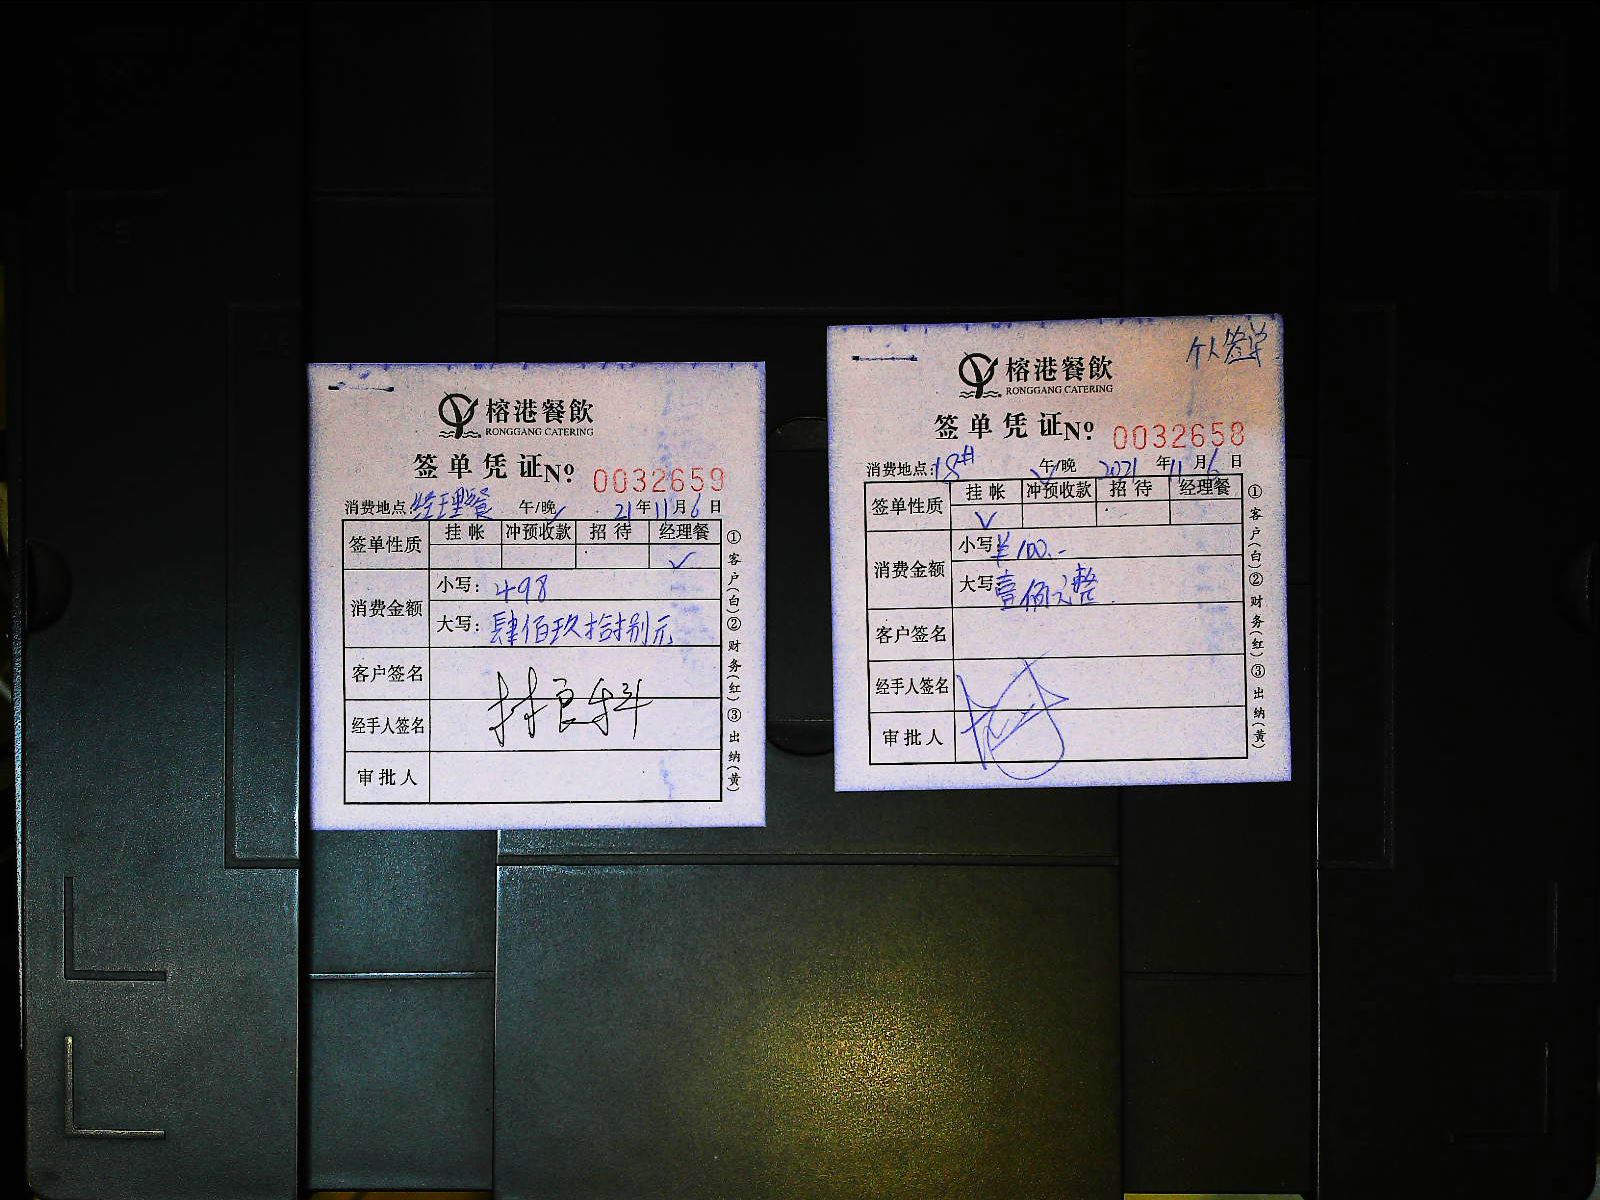 榕港餐飲
RONGGANG CATERING
签单凭证№ 0032659
消费地点:经理餐 午/晚 21年11月6日
签单性质 挂帐 冲预收款 招待 经理餐
✓
消费金额
小写: 498
大写: 肆佰玖拾捌元
客户签名
林良科
经手人签名
审批人
①客户(白)②财务(红)③出纳(黄)
个人签单
榕港餐飲
RONGGANG CATERING
签单凭证№ 0032658
消费地点:18# 午/晚 2021年11月6日
签单性质 挂帐 冲预收款 招待 经理餐
✓
消费金额
小写 ¥100.-
大写 壹佰元整
客户签名
经手人签名
审批人
①客户(白)②财务(红)③出纳(黄)